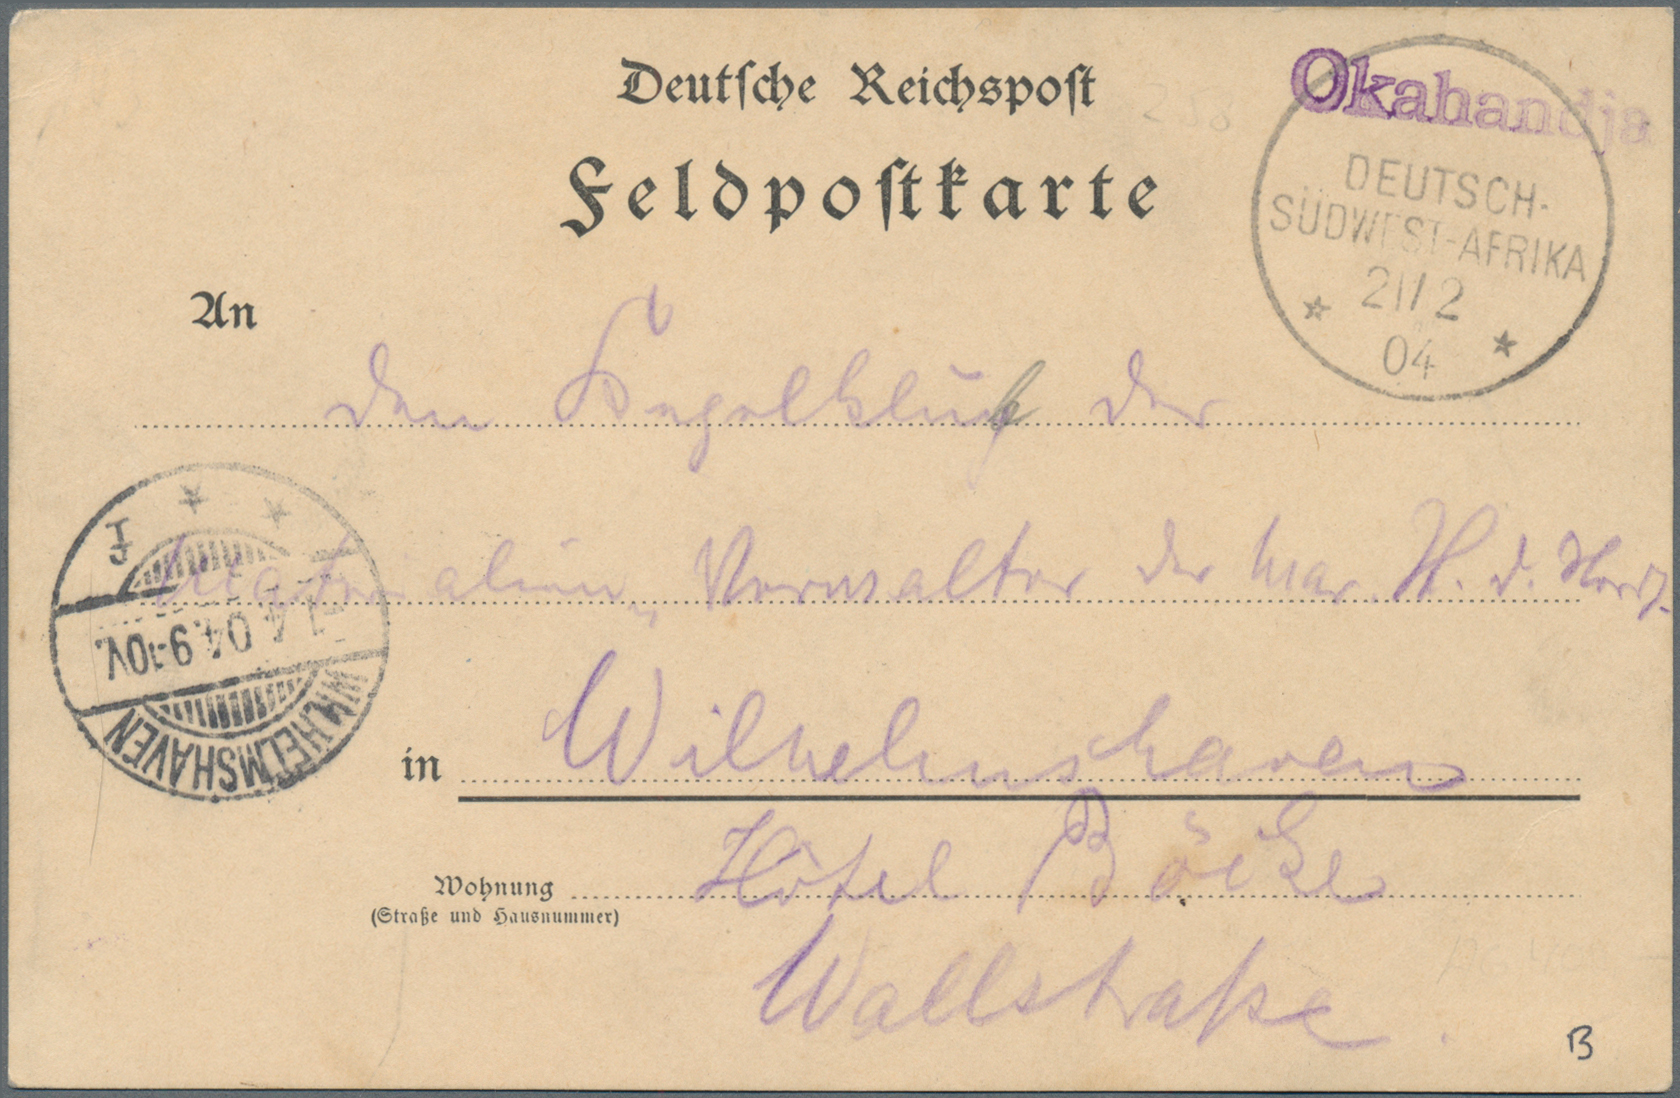 Deutsche Reichspost
Feldpostkarte
Okahandja
DEUTSCH-
SÜDWEST-AFRIKA
21/2
04
An
den Kegelklub der
Verwalter der Mar. H. d.
1.4.04.9-10V.
WILHELMSHAVEN
in Wilhelmshaven
Wohnung Hôtel Böcke
(Straße und Hausnummer)
Wallstraße.
B